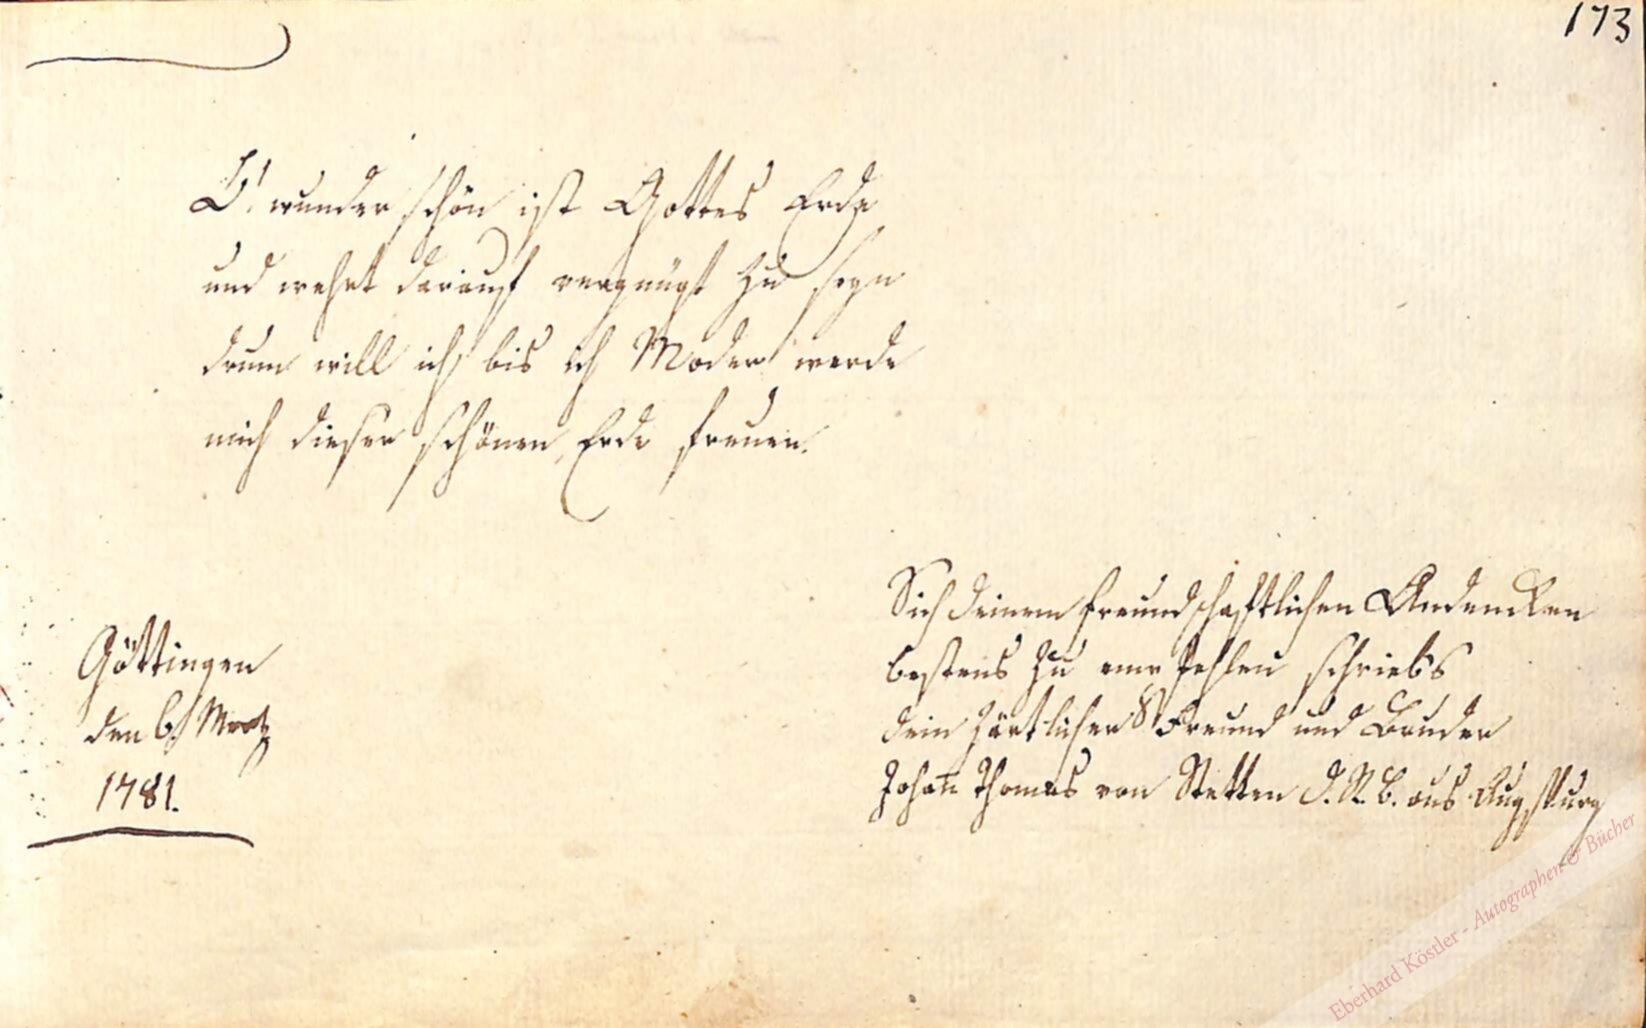 173
O! wunder schön ist Gottes Erde
und wehrt darauf vergnügt zu seyn
drum will ich bis ich Moder werde
mich dieser schönen Erde freuen.
Göttingen
den 6t Mertz
1781.
Sich deinem freundschaftlichen Andencken
bestens zu empfehlen schriebs
dein zärtlicher Freund und Bruder
Johañ Thomas von Stetten d. R. B. aus Augspurg
Eberhard Köstler - Autographen & Bücher